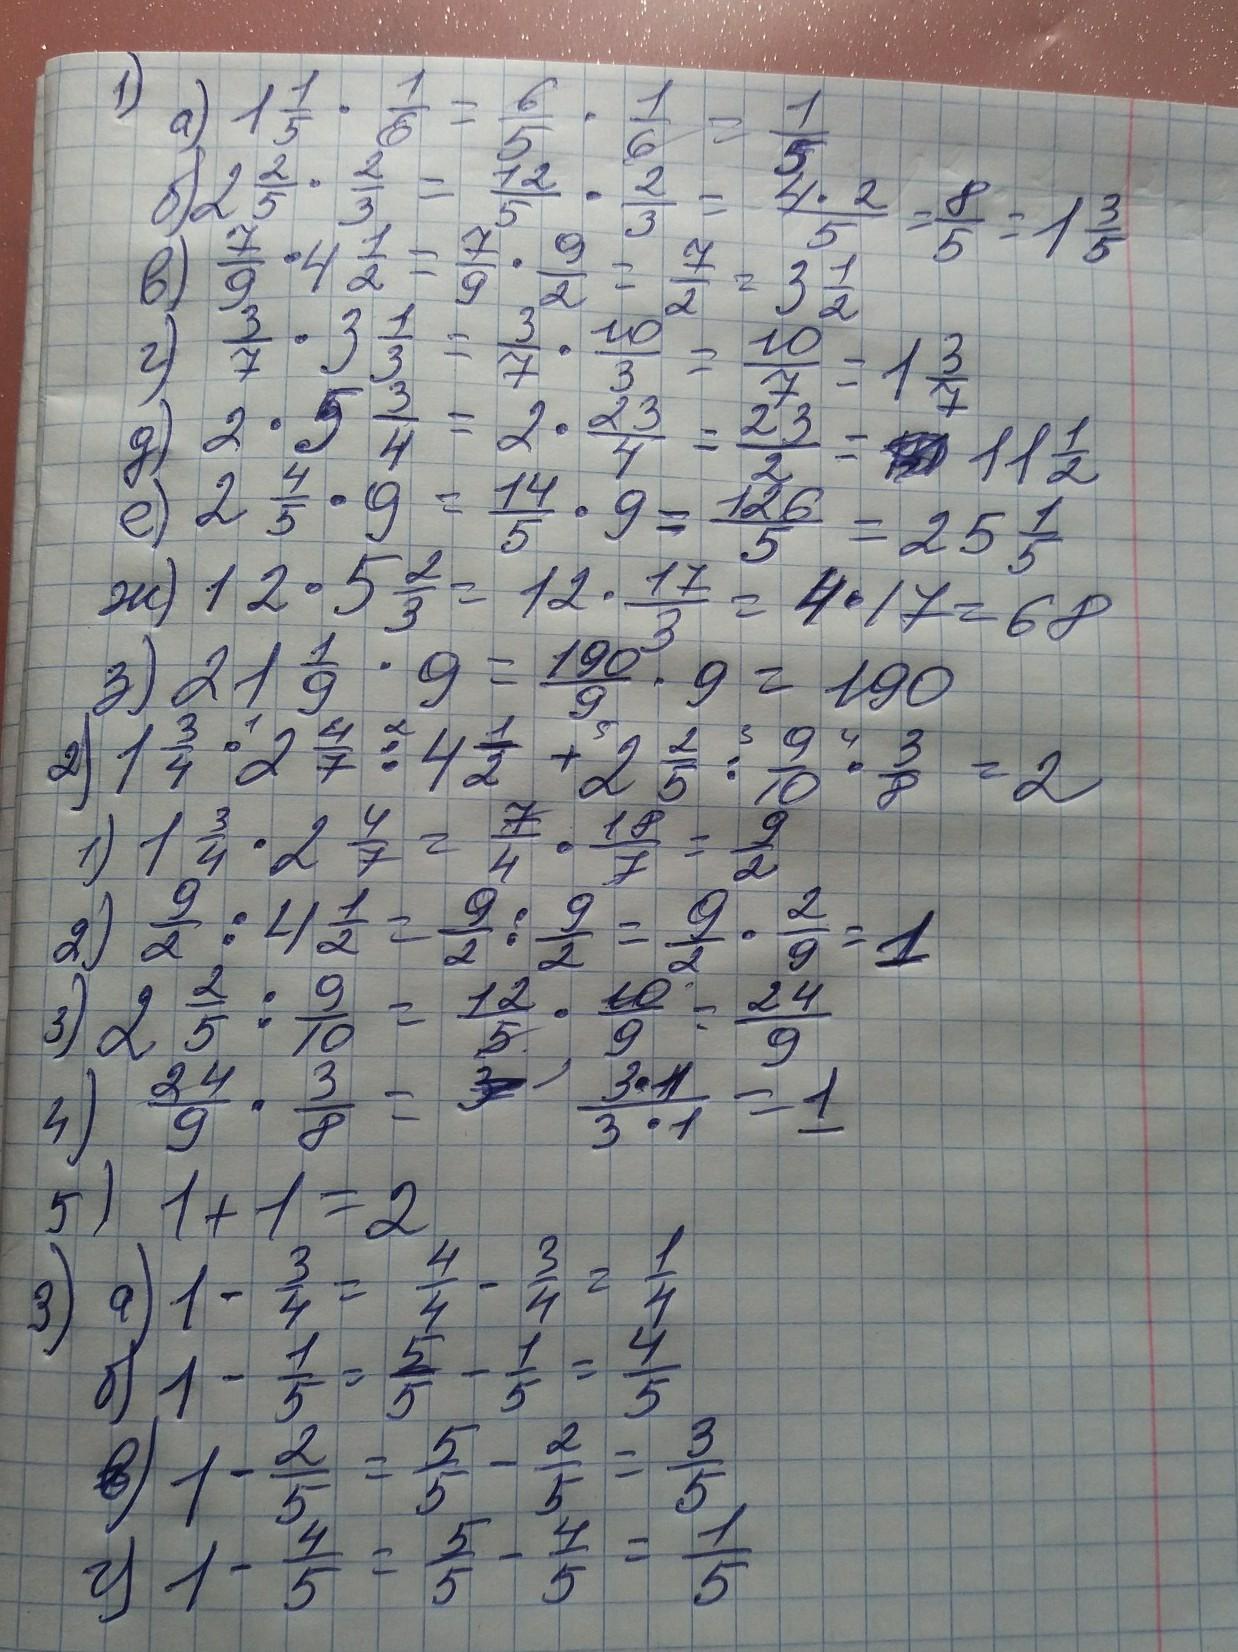 1) а) 1 1/5 · 1/6 = 6/5 · 1/6 = 1/5
б) 2 2/5 · 2/3 = 12/5 · 2/3 = 4·2/5 = 8/5 = 1 3/5
в) 7/9 · 4 1/2 = 7/9 · 9/2 = 7/2 = 3 1/2
г) 3/7 · 3 1/3 = 3/7 · 10/3 = 10/7 = 1 3/7
д) 2 · 5 3/4 = 2 · 23/4 = 23/2 = 11 1/2
е) 2 4/5 · 9 = 14/5 · 9 = 126/5 = 25 1/5
ж) 12 · 5 2/3 = 12 · 17/3 = 4 · 17 = 68
з) 21 1/9 · 9 = 190/9 · 9 = 190
2) 1 3/4 · 2 4/7 : 4 1/2 + 2 2/5 : 9/10 · 3/8 = 2
1) 1 3/4 · 2 4/7 = 7/4 · 18/7 = 9/2
2) 9/2 : 4 1/2 = 9/2 : 9/2 = 9/2 · 2/9 = 1
3) 2 2/5 : 9/10 = 12/5 · 10/9 = 24/9
4) 24/9 · 3/8 = 3·1/3·1 = 1
5) 1 + 1 = 2
3) а) 1 - 3/4 = 4/4 - 3/4 = 1/4
б) 1 - 1/5 = 5/5 - 1/5 = 4/5
в) 1 - 2/5 = 5/5 - 2/5 = 3/5
г) 1 - 4/5 = 5/5 - 4/5 = 1/5